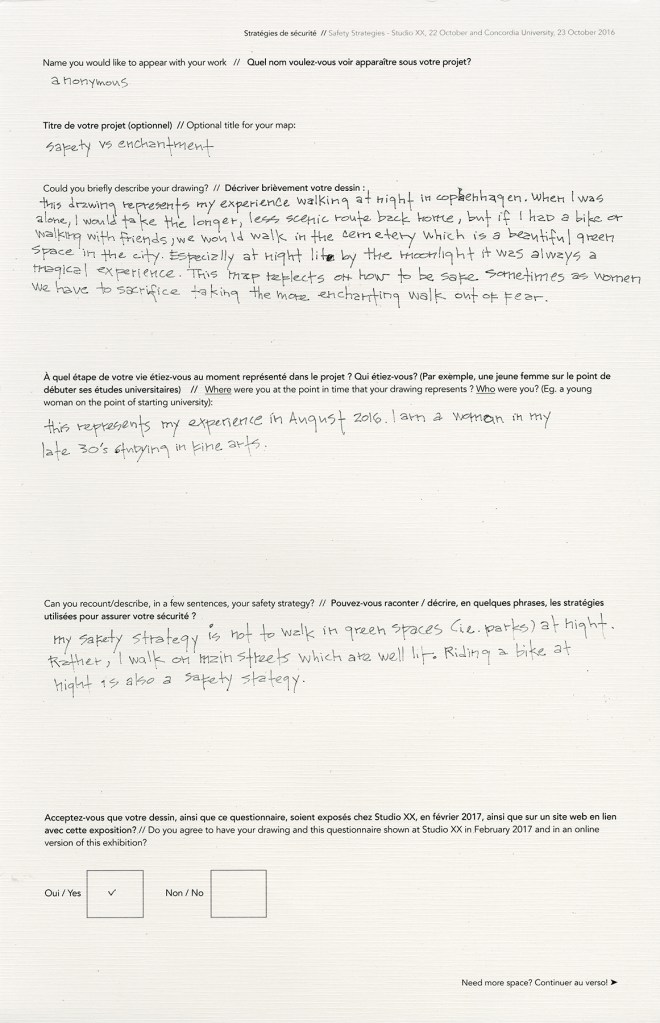 Stratégies de sécurité // Safety Strategies - Studio XX, 22 October and Concordia University, 23 October 2016
Name you would like to appear with your work // Quel nom voulez-vous voir apparaître sous votre projet?
anonymous
Titre de votre projet (optionnel) // Optional title for your map:
safety vs enchantment
Could you briefly describe your drawing? // Décriver brièvement votre dessin :
this drawing represents my experience walking at night in copenhagen. When I was
alone, I would take the longer, less scenic route back home, but if I had a bike or
walking with friends, we would walk in the cemetery which is a beautiful green
space in the city. Especially at night lit by the moonlight it was always a
magical experience. This map reflects on how to be safe sometimes as women
we have to sacrifice taking the more enchanting walk out of fear.
À quel étape de votre vie étiez-vous au moment représenté dans le projet ? Qui étiez-vous? (Par exemple, une jeune femme sur le point de
débuter ses études universitaires) // Where were you at the point in time that your drawing represents ? Who were you? (Eg. a young
woman on the point of starting university):
this represents my experience in August 2016. I am a woman in my
late 30's studying in fine arts.
Can you recount/describe, in a few sentences, your safety strategy? // Pouvez-vous raconter / décrire, en quelques phrases, les stratégies
utilisées pour assurer votre sécurité ?
my safety strategy is not to walk in green spaces (ie. parks) at night.
Rather, I walk on main streets which are well lit. Riding a bike at
night is also a safety stategy.
Acceptez-vous que votre dessin, ainsi que ce questionnaire, soient exposés chez Studio XX, en février 2017, ainsi que sur un site web en lien
avec cette exposition? // Do you agree to have your drawing and this questionnaire shown at Studio XX in February 2017 and in an online
version of this exhibition?
Oui / Yes ✓ Non / No
Need more space? Continuer au verso! ➤